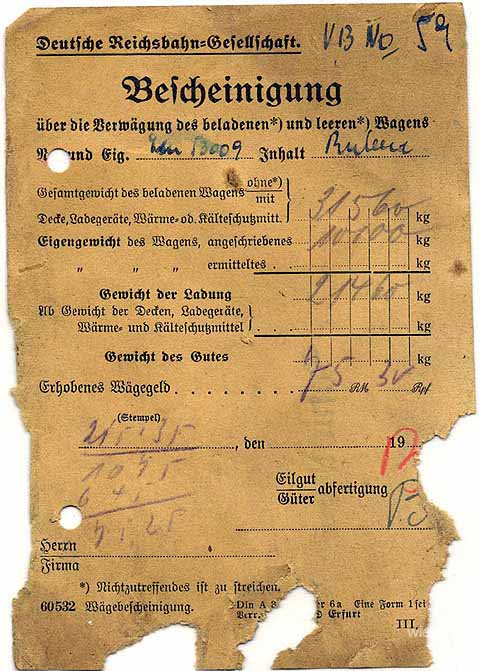 Deutsche Reichsbahn=Gesellschaft. VB No 59
Bescheinigung
über die Verwägung des beladenen*) und leeren*) Wagens
und Eig. 53009 Inhalt
Gesamtgewicht des beladenen Wagens ohne*) / mit
Decke, Ladegeräte, Wärme- od. Kälteschutzmitt. 31560 kg
Eigengewicht des Wagens, angeschriebenes 10100 kg
„ „ „ ermitteltes . kg
Gewicht der Ladung 21460 kg
Ab Gewicht der Decken, Ladegeräte,
Wärme- und Kälteschutzmittel kg
Gewicht des Gutes kg
Erhobenes Wägegeld . . . . . . . 75 RM 30 Rpf
(Stempel)
, den 19
Eilgut / Güter abfertigung
Herrn
Firma
*) Nichtzutreffendes ist zu streichen.
60532 Wägebescheinigung. Din A 6a Eine Form 1 sei
Erfurt
III.